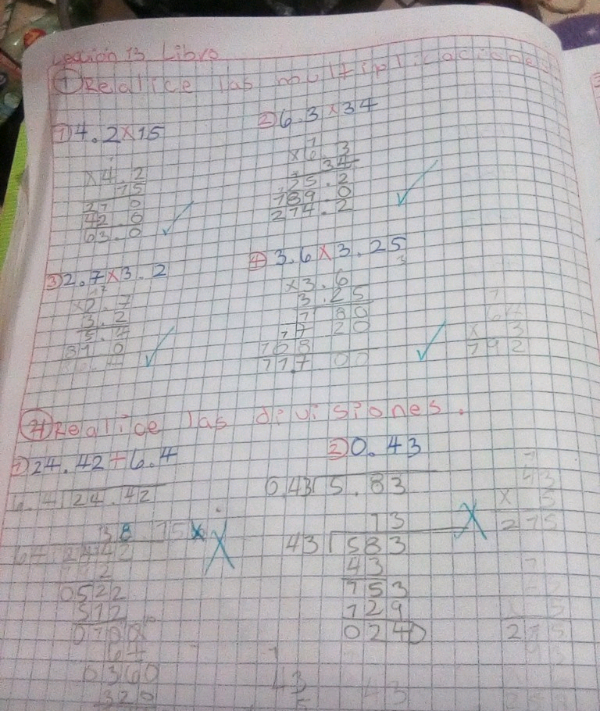 Lección 13 Libro
① Realice las multiplicaciones
① 4.2 × 15
× 4.2
15
21 0
42.0
63.0
② 6.3 × 34
× 6.3
34
25.2
189.0
214.2
③ 2.7 × 3.2
× 2.7
3.2
5.4
81 0
④ 3.6 × 3.25
× 3.6
3.25
1 80
7 20
108
11 7.00
× 3
792
② Realice las divisiones.
① 24.42 ÷ 6.4
6.4 24.42
3 8 15
64 2442
192
0522
512
64
0360
320
② 0.43
0.43 5.83
13
43 583
43
153
129
024
43
× 5
215
215
43
43